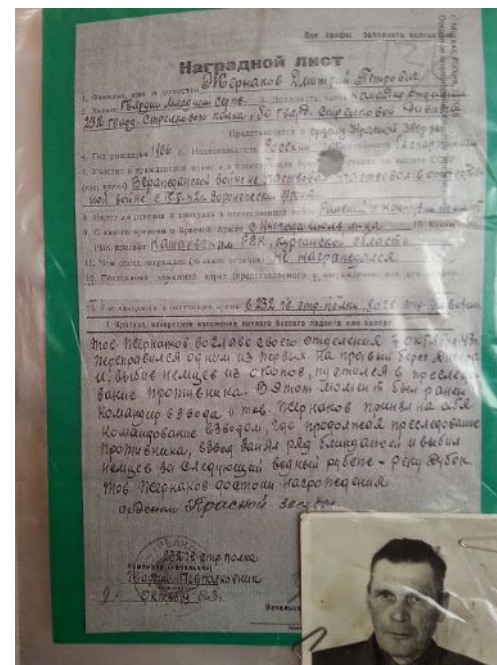 Все графы заполнять полностью
Наградной лист
1. Фамилия, имя и отчество Жернаков Дмитрий Петрович
2. Звание Гвардии младший серж. 3. Должность, часть Командир отделения
232 гвард. Стрелкового полка 80 гвард. Стрелковой Дивизии
Представляется к ордену Красной Звезды
4. Год рождения 1906 5. Национальность Русский Беспартийный
7. Участие в гражданской войне и последующих боевых действиях по защите СССР
в гражданской войне не участвовал участвовал в отечествен
ной войне с 15.8.42г. Воронежский Фронт
8. Имеет ли ранения и контузии в отечественной войне
9. С какого времени в Красной Армии
РВК призван Катайским РВК, Курганской области
11. Чем ранее награжден (за какие отличия) Не награждался
12. Постоянный домашний адрес
в 232 гв. стр. полку, 80 гв. стр. дивизии
1. Краткое, конкретное изложение личного боевого подвига или заслуг
Тов Жернаков во главе своего отделения 7 октября 43г.
переправился одним из первых на правый берег Днепра
и, выбив немцев из окопов, пустился в преследо
вание противника. В этот момент был ранен
Командир взвода и тов. Жернаков принял на себя
Командование взводом, где продолжая преследование
противника, взвод занял ряд блиндажей и выбил
немцев за следующий водный рубеж - реку
Тов Жернаков достоин награждения
орденом Красной звезды
232 гв стр. полка
Гвардии Подполковник
Октября 43г.